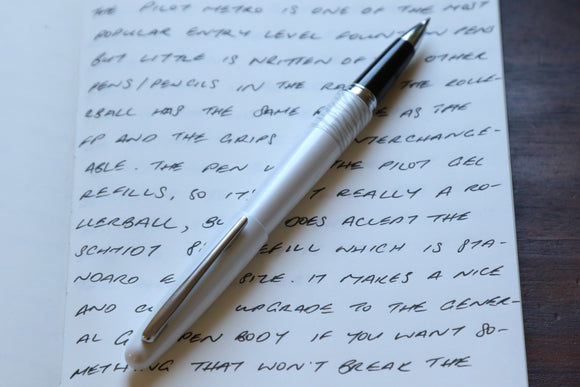 THE PILOT METRO IS ONE OF THE MOST
POPULAR ENTRY LEVEL FOUNTAIN PENS
BUT LITTLE IS WRITTEN OF OTHER
PENS/PENCILS IN THE THE ROLLE-
RBALL HAS THE SAME AS THE
FP AND THE GRIPS INTERCHANGE-
ABLE. THE PEN THE PILOT GEL
REFILLS, SO REALLY A RO-
LLERBALL, DOES ACCEPT THE
SCHMIDT REFILL WHICH IS STA-
NDARD SIZE. IT MAKES A NICE
AND UPGRADE TO THE GENER-
AL PEN BODY IF YOU WANT SO-
METHING THAT WON'T BREAK THE